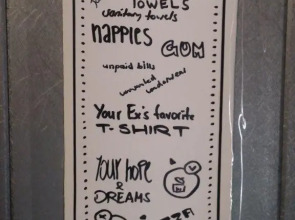 TOWELS
sanitary towels
nappies
GUM
unpaid bills
unwanted
underwear
Your Ex's favorite
T-SHIRT
Your hope
&
DREAMS